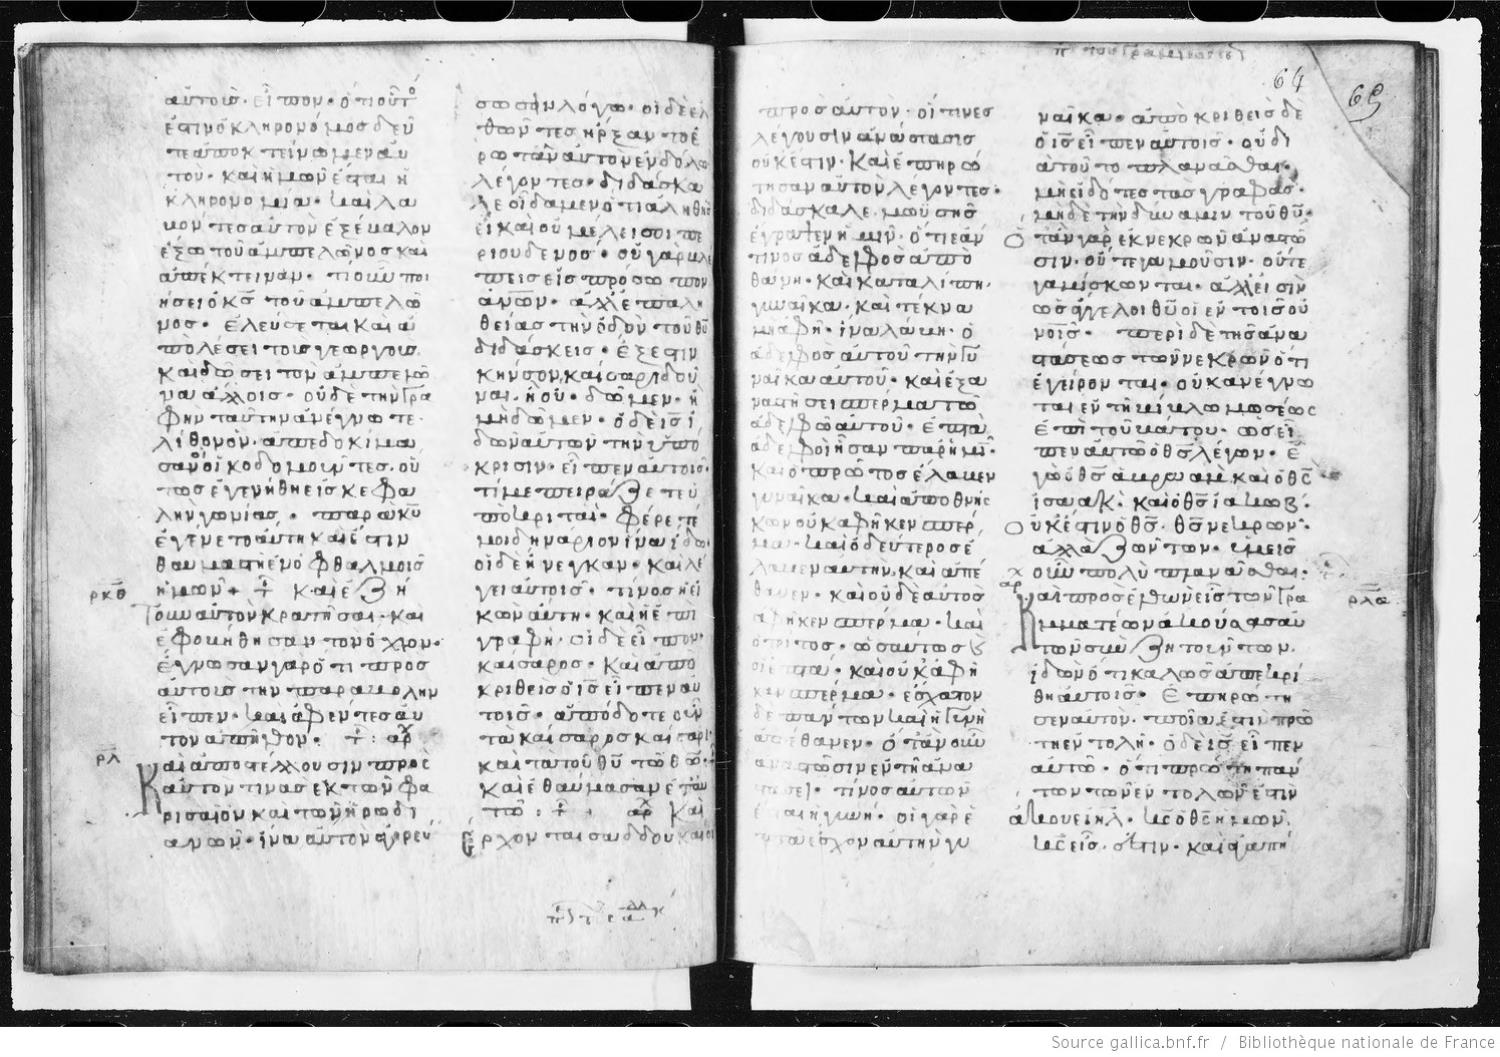 αὐτοὺς· εἶπον· ὅτι οὗτό
ἐστιν ὁ κληρονόμος δεῦ
τε ἀποκτείνωμεν αὐ
τον· καὶ ἡμῶν ἔσται ἡ
κληρονομία· καὶ λα
βόντες αὐτὸν ἐξέβαλον
ἔξω τοῦ ἀμπελῶνος καὶ
ἀπέκτειναν· τί οὖν ποι
ήσει ὁ κς τοῦ ἀμπελῶ
νος· ἐλεύσεται καὶ ἀ
πολέσει τοὺς γεωργοὺς
καὶ δώσει τὸν ἀμπελῶ
να ἄλλοις· οὐδὲ τὴν γρα
φὴν ταύτην ἀνέγνωτε·
λίθον ὃν· ἀπεδοκίμα
σαν οἱ οἰκοδομοῦντες· οὗ
τος ἐγενήθη εἰς κεφα
λὴν γωνίας· παρὰ κυ
ἐγένετο αὕτη καὶ ἔστιν
θαυμαστὴ ἐν ὀφθαλμοῖς
ρκθ
ἡμῶν + + καὶ ἐζή
τουν αὐτὸν κρατῆσαι· καὶ
ἐφοβήθησαν τὸν ὄχλον·
ἔγνωσαν γὰρ ὅτι πρὸς
αὐτοὺς τὴν παραβολὴν
εἶπεν· καὶ ἀφέντες αὐ
τὸν ἀπῆλθον· + : αρχ
ρλ
Καὶ ἀποστέλλουσιν πρὸς
αὐτὸν τινὰς ἐκ τῶν φα
ρισαίον καὶ τῶν ἡρωδι
ανῶν· ἵνα αὐτὸν ἀγρεύ
σωσιν λόγω· οἱ δὲ ἐλ
θῶντες ἤρξαντο ἐ
ρωτᾶν αὐτὸν ἐν δόλω
λέγοντες· διδάσκα
λε οἴδαμεν ὅτι ἀληθὴς
εἶ καὶ οὐ μέλει σοι πε
ρὶ οὐδενός· οὐ γὰρ βλέ
πεις εἰς πρόσωπον
ανων· ἀλλ' ἐπ' αλη
θείας τὴν ὁδὸν τοῦ θυ
διδάσκεις· ἔξεστιν
κῆνσον καίσαρι δοῦ
ναι· ἢ οὔ· δῶμεν· ἢ
μὴ δῶμεν· ὁ δὲ ις ἰ
δὼν αὐτῶν τὴν ὑπό
κρισιν· εἶπεν αὐτοῖς·
τί με πειράζετε ὑ
ποκριταί· φέρετέ
μοι δηνάριον ἵνα ἴδω·
οἱ δὲ ἤνεγκαν· καὶ λέ
γει αὐτοῖς· τίνος ἡ εἰ
κὼν αὕτη· καὶ ἡ ἐπι
γραφή· οἱ δὲ εἶπον·
καίσαρος· καὶ ἀπο
κριθεὶς ὁ ις εἶπεν αὐ
τοῖς· ἀπόδοτε οὖν
τὰ καίσαρος καίσαρι
καὶ τὰ τοῦ θυ τῶ θω·
καὶ ἐθαύμασαν ἐπ' αὐ
τῶ· + + αρχ Καὶ
ἔρχονται σαδδουκαῖοι
64
65
πρὸς αὐτὸν· οἵτινες
λέγουσιν ἀνάστασις
οὐκ ἔστιν· καὶ ἐπηρώ
τησαν αὐτὸν λέγοντες·
διδάσκαλε· μωϋσῆς
ἔγραψεν ἡμῖν· ὅτι ἐάν
τινος ἀδελφὸς ἀπο
θάνη· καὶ καταλίπη·
γυναῖκα· καὶ τέκνα
μὴ ἀφῆ· ἵνα λάβη· ὁ
ἀδελφὸς αὐτοῦ τὴν γυ
ναῖκα αὐτοῦ· καὶ ἐξα
ναστήσει σπέρμα τῶ
ἀδελφῶ αὐτοῦ· ἑπτὰ
ἀδελφοὶ ἦσαν παρ' ἡμῖν·
καὶ ὁ πρῶτος ἔλαβεν
γυναῖκα· καὶ ἀποθνήσ
κων οὐκ ἀφῆκεν σπέρ
μα· καὶ ὁ δεύτερος ἔ
λαβεν αὐτήν, καὶ ἀπέ
θανεν· καὶ οὐδὲ αὐτὸς
ἀφῆκεν σπέρμα· καὶ
ὁ τρίτος· ὡσαύτως
οἱ ἑπτά· καὶ οὐκ ἀφῆ
καν σπέρμα· ἔσχατον
δὲ πάντων καὶ ἡ γυνὴ
ἀπέθανεν· ὅταν οὖν
ἀναστῶσιν ἐν τῆ ἀνα
στάσει· τίνος αὐτῶν
ἔσται ἡ γυνή· οἱ γὰρ ἑ
πτὰ ἔσχον αὐτὴν γυ
ναῖκα· ἀποκριθεὶς δὲ
ὁ ις εἶπεν αὐτοῖς· οὐ δι
ὰ τοῦτο πλανᾶσθαι·
μὴ εἰδότες τὰς γραφάς·
μὴδὲ τὴν δύναμιν τοῦ θυ·
ὅταν γὰρ ἐκ νεκρῶν ἀναστῶ
σιν· οὔτε γαμοῦσιν· οὔτε
γαμίσκωνται· ἀλλ' εἰσὶν
ὡς ἄγγελοι θυ οἱ ἐν τοῖς οὐ
νοῖς· περὶ δὲ τῆς ἀνα
στάσεως τῶν νεκρῶν ὅτι
ἐγείρονται· οὐκ ἀνέγνω
ται ἐν τῆ βίβλω μωσέως
ἐπὶ τοῦ βάτου· ὡς εἶ
πεν αὐτῶ ὁ θς λέγων· ἐ
γὼ ὁ θς ἀβραὰμ καὶ ὁ θς
ἰσαάκ· καὶ ὁ θς ἰακώβ·
οὐκ ἔστιν ὁ θς· θς νεκρῶν·
ἀλλὰ ζώντων· ὑμεῖς
οὖν πολὺ πλανᾶσθαι·
ρλα
Καὶ προσελθὼν εἷς τῶν γρα
μματέων ἀκούσας αὐ
τῶν συνζητούντων·
ἰδὼν ὅτι καλῶς ἀπεκρί
θη αὐτοῖς· ἐπηρώτη
σεν αὐτόν· ποῖα ἐστὶν πρώ
τη ἐντολή· ὁ δὲ ις εἶπεν
αὐτῶ· ὅτι πρώτη πάν
των τῶν ἐντολῶν ἐστίν
ἄκουε ιηλ· κς ὁ θς ἡμῶν
κς εἷς ἐστιν· καὶ ἀγαπή